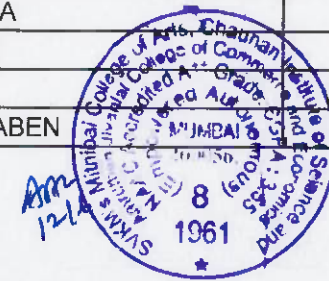 A
ABEN
SVKM's Mithibai College of Arts, Chauhan Institute of Science and
Amrutben Jivanlal College of Commerce and Economics
NAAC Accredited A++ Grade, CGPA: 3.55
Autonomous
MUMBAI
8
1961